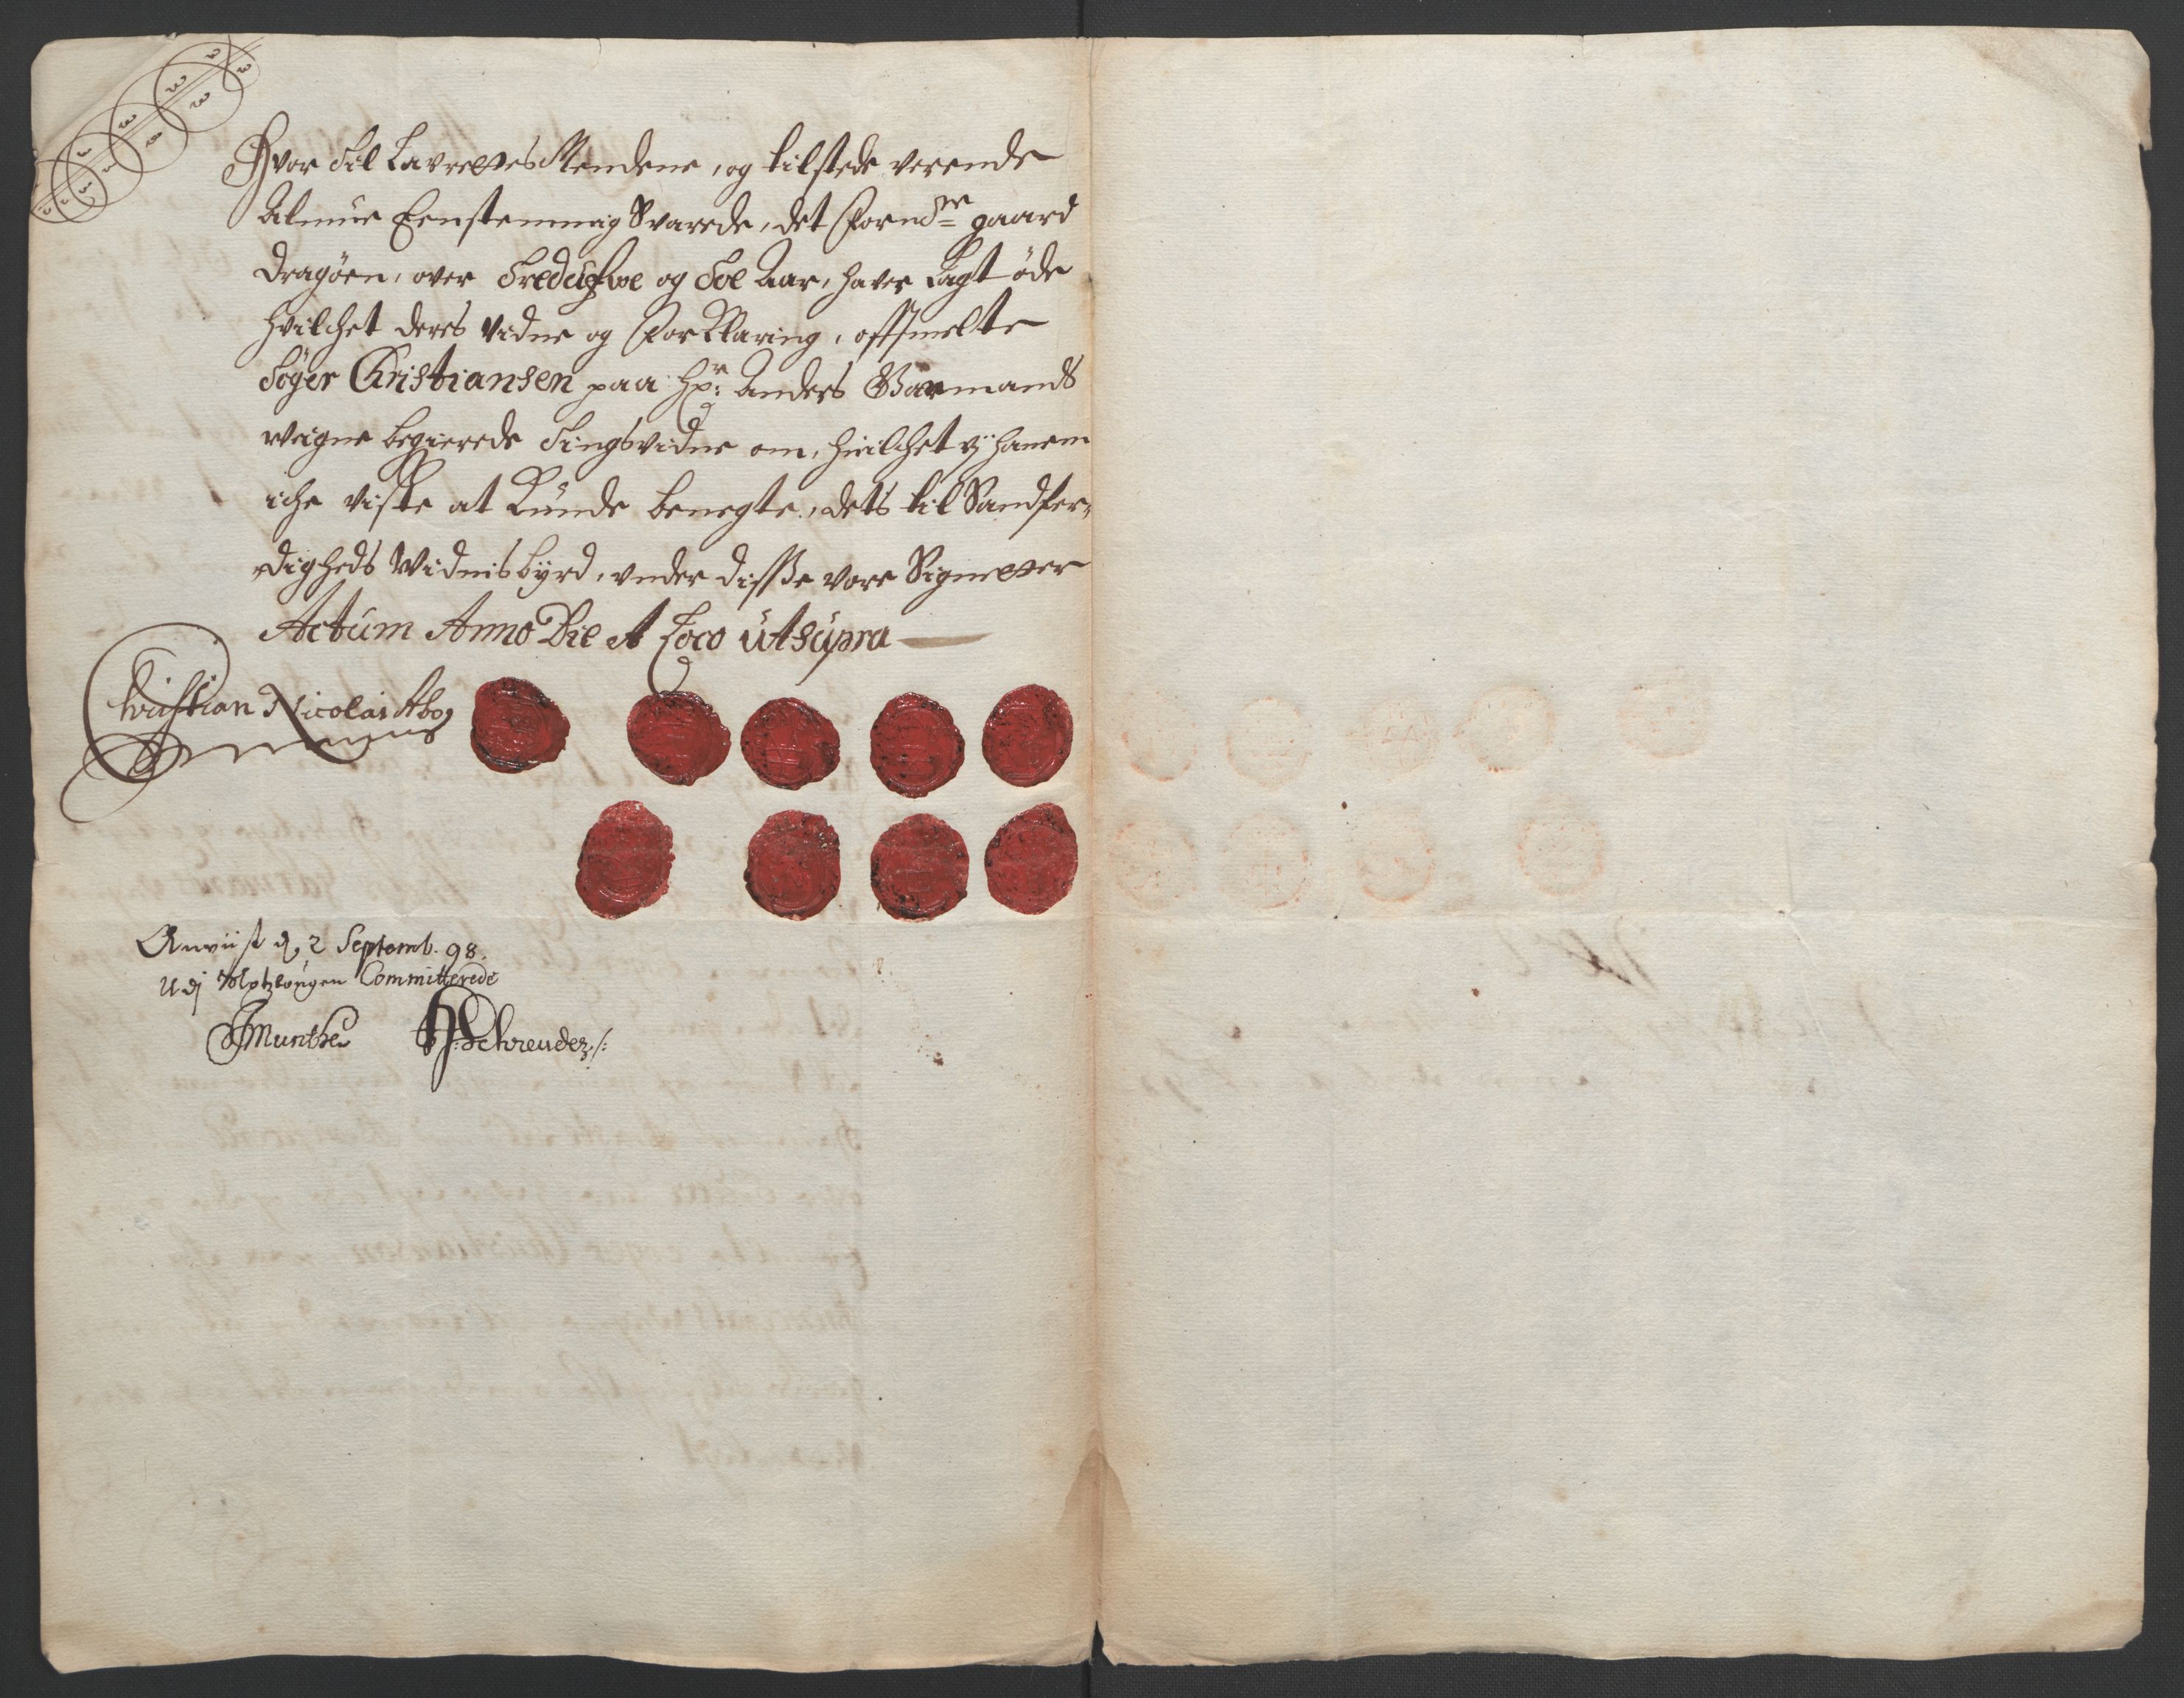 Hvor til Lavrettes Mendene, og tilstede verende
Almue Eenstemmig Svarede, det Forndte gaard
Dragøen, over Tredufwe og Toe Aar, haver Lagt øde
hvilchet deres Vidne og Forklaring, offtmelte
Søger Christiansen paa Hr: Anders Garmands
weigne begierede Tingsvidne om, hvilchet vj hanem
iche viste at Kunde benegte, dets til Sandfer-
digheds Widnisbyrd, under disse vore Signetter
Actum Anno Die et Loco utsupra
Christian Nicolai
Anviist d, 2 Septemb. 98.
Udj Committerede
Munthe Schreuder /: